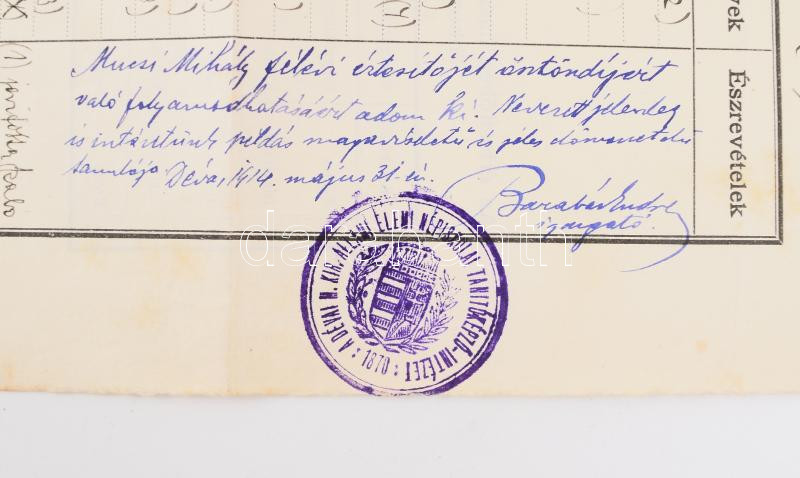 Mucsi Mihály félévi értesítőjét ösztöndíjért
való folyamodhatásáért adom ki. Nevezett jelenleg
is intézetünk példás magaviseletű és jeles előmenetelű
tanulója Déva, 1914. május 31-én.
Barabás Endre
igazgató.
A DÉVAI M. KIR. ÁLLAMI ELEMI NÉPISKOLAI TANITÓKÉPZŐ-INTÉZET: 1870:
Észrevételek
vek
darabanth